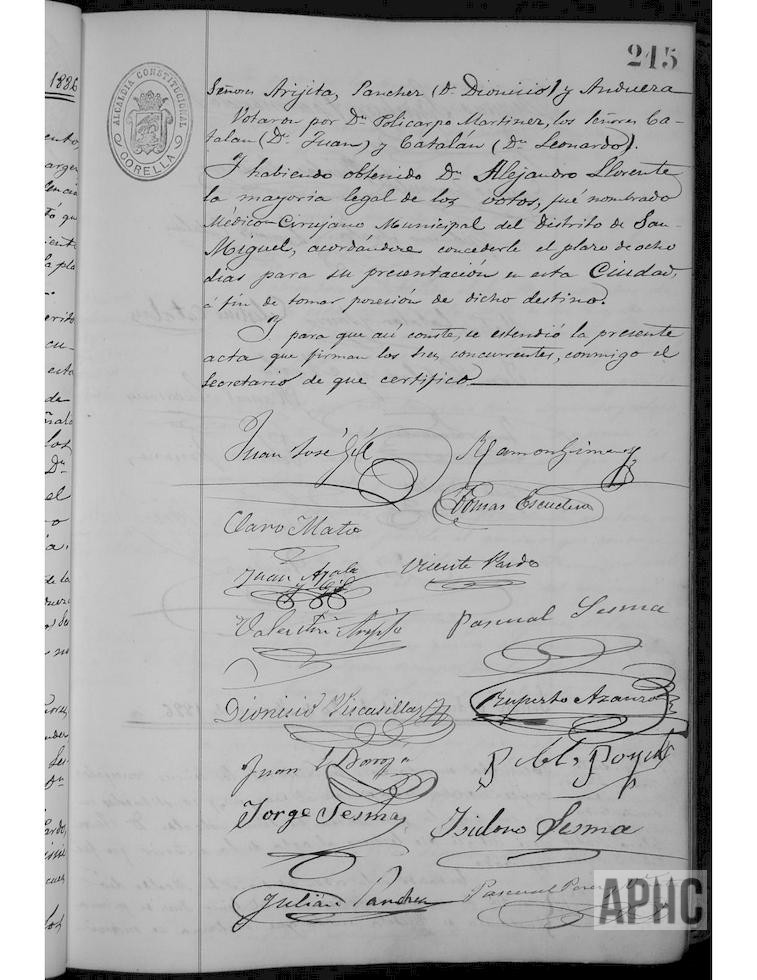 215
1886
ALCALDIA CONSTITUCIONAL
CORELLA
Señores Arijita, Sanchez (Dn Dionicio) y Anduera
Votaron por Dn Policarpo Martinez, los Señores Ca-
talan (Dn Juan) y Catalán (Dn Leonardo).
Y habiendo obtenido Dn Alejandro Llorente
la mayoria legal de los votos, fué nombrado
Médico-Cirujano Municipal del distrito de San
Miguel, acordándose concederle el plazo de ocho
dias para su presentación en esta Ciudad,
á fin de tomar posesión de dicho destino.
Y para que así conste, se estendió la presente
acta que firman los Sres concurrentes, conmigo el
Secretario de que certifico
Juan José Gil
Ramon Gimenez
Tomas Escudero
Claro Mato
Juan Ayala
y Gil
Vicente Pardo
Valentin Arijita
Pascual Sesma
Dionisio Viscasillas
Ruperto Azanza
Juan
Jorge Sesma
Isidoro Sesma
Julian Sanchez
Pascual
APHC